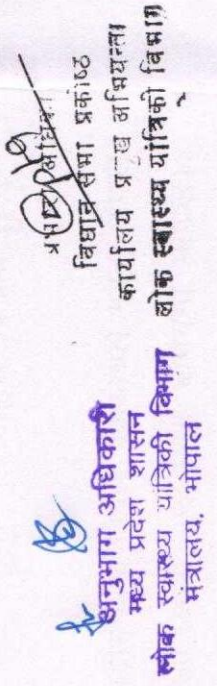 अनुभाग अधिकारी
मध्य प्रदेश शासन
लोक स्वास्थ्य यांत्रिकी विभाग
मंत्रालय, भोपाल
विधान सभा प्रकोष्ठ
कार्यालय प्रमुख अभियन्ता
लोक स्वास्थ्य यांत्रिकी विभाग